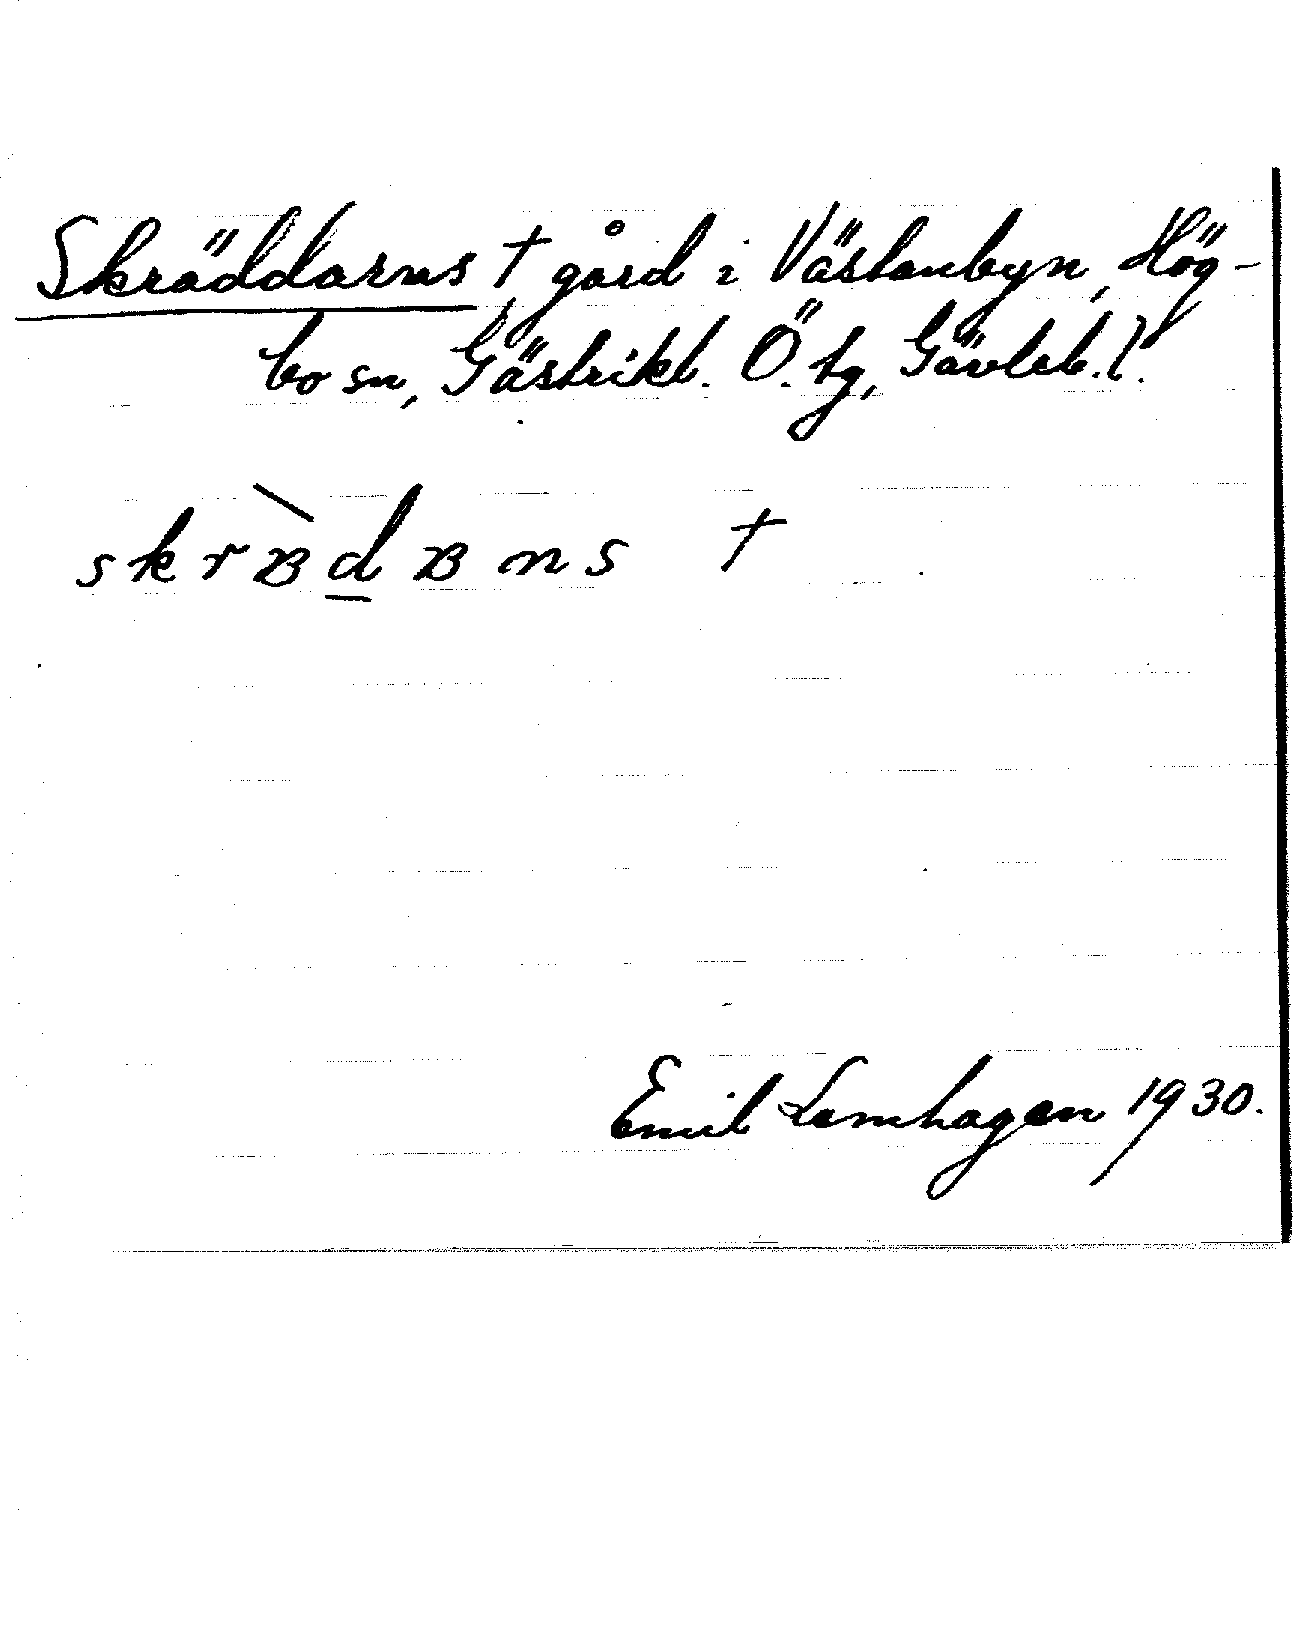 Skräddarns † gård i Västanbyn, Hög-
bo sn, Gästrikl. Ö. tg, Gävleb. l.
skrᴃ̀d̲ᴃns †
Emil Lemhagen 1930.